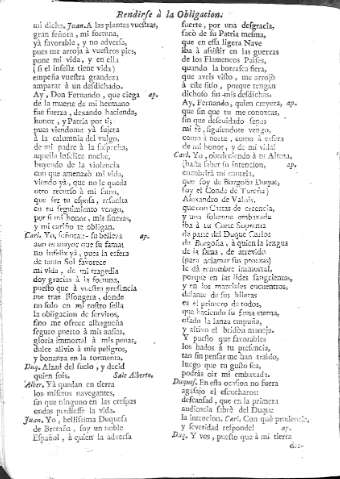 Rendirse à la Obligacion.
mi dicha. Juan. A las plantas vuestras,
gran señora, mi fortuna,
yà favorable, y no adversa,
pues me arroja à vuestros pies,
pone mi vida, y en ella
(si el infeliz tiene vida)
empeña vuestra grandeza
amparar à un desdichado.
Ay, Don Fernando, que ciega ap.
de la muerte de mi hermano
fue fuerza, dexando hacienda,
honor, y Patria por ti;
pues viendome yà sujeta
à la calumnia del vulgo,
de mi padre à la sospecha,
aquella infelice noche,
huyendo de la violencia
con que amenazò mi vida,
viendo yà, que no le queda
otro recurso à mi fama,
que ser tu esposa, resuelta
en tu seguimiento vengo,
por si mi honor, mis finezas,
y mi cariño te obligan.
Carl. Yo, señora:- su belleza ap.
aun es mayor que su fama:
no infeliz yà, pues la esfera
de tanto Sol favorece
mi vida, de mi tragedia
doy gracias à la fortuna,
puesto que à vuestra presencia
me trae lisongera, donde
no solo en mi rostro sella
la obligacion de serviros,
sino me ofrece alhagueña
seguro puerto à mis ansias,
gloria immortal à mis penas,
dulce alivio à mis peligros,
y bonanza en la tormenta.
Duq. Alzad del suelo, y decid
quien sois. Sale Alberto.
Alber. Yà quedan en tierra
los miseros navegantes,
sin que ninguno en las crespas
ondas perdiesse la vida.
Juan. Yo, bellissima Duquesa
de Bretaña, soy un noble
Español, à quien la adversa
suerte, por una desgracia,
sacò de su Patria mesma,
que en essa ligera Nave
iba à assistir en las guerras
de los Flamencos Paises,
quando la borrasca fiera,
que aveis visto, me arrojò
à este sitio, porque tengan
dichoso fin mis desdichas.
Ay, Fernando, quien creyera, ap.
que sin que tu me conozcas,
sin que descuidado sepas
mi fè, siguiendote vengo,
como à norte, como à esfera
de mi honor, y de mi vida!
Carl. Yo, obedeciendo à tu Alteza,
(hasta saber su intencion, ap.
encubrirà mi cautela,
que soy de Borgoña Duque)
soy el Conde de Turena,
Alexandro de Valois,
que con Cartas de creencia,
y una solemne embaxada
iba à tu Corte suprema
de parte del Duque Carlos
de Borgoña, à quien la lengua
de la fama, de atrevido
(para aclamar sus proezas)
le dà renombre immortal,
porque en las lides sangrientas,
y en los marciales encuentros,
delante de sus hileras
es el primero de todos,
que haciendo su fama eterna,
osado la lanza empuña,
y altivo el bridon maneja.
Y puesto que favorables
los hados à tu presencia,
tan sin pensar me han traido,
luego que tu gusto sea,
podràs oir mi embaxada.
Duques. En esta ocasion no fuera
agasajo el escucharos:
descansad, que en la primera
audiencia sabrè del Duque
la intencion. Carl. Con què prudencia,
y severidad responde! ap.
Duq. Y vos, puesto que à mi tierra